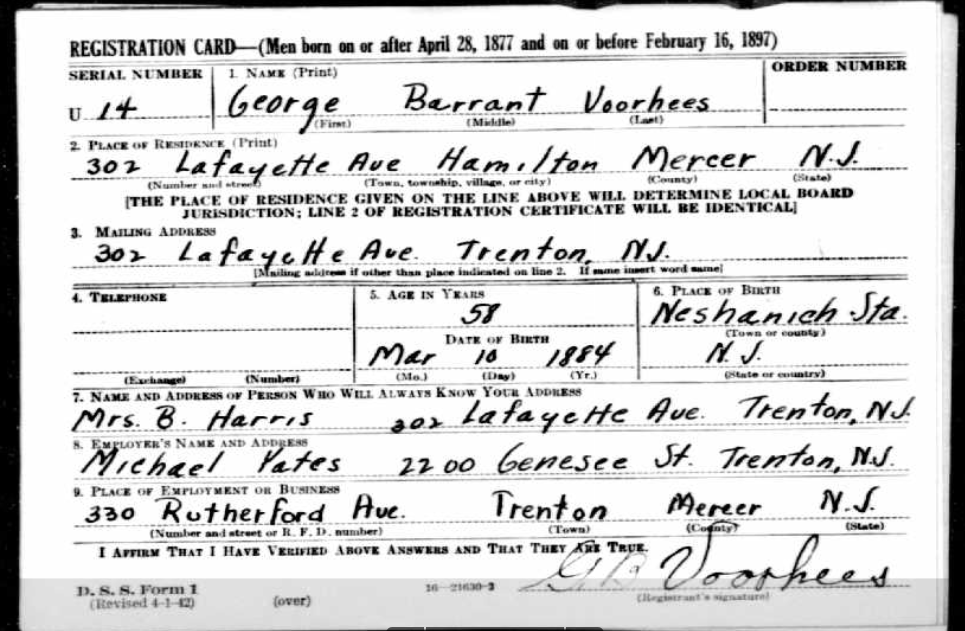 REGISTRATION CARD—(Men born on or after April 28, 1877 and on or before February 16, 1897)
SERIAL NUMBER 1. NAME (Print) ORDER NUMBER
U 14 George Barrant Voorhees
(First) (Middle) (Last)
2. PLACE OF RESIDENCE (Print)
302 Lafayette Ave Hamilton Mercer N.J.
(Number and street) (Town, township, village, or city) (County) (State)
[THE PLACE OF RESIDENCE GIVEN ON THE LINE ABOVE WILL DETERMINE LOCAL BOARD
JURISDICTION; LINE 2 OF REGISTRATION CERTIFICATE WILL BE IDENTICAL]
3. MAILING ADDRESS
302 Lafayette Ave. Trenton, N.J.
[Mailing address if other than place indicated on line 2. If same insert word same]
4. TELEPHONE 5. AGE IN YEARS 6. PLACE OF BIRTH
58 Neshanich Sta.
(Town or county)
DATE OF BIRTH
Mar 10 1884 N.J.
(Exchange) (Number) (Mo.) (Day) (Yr.) (State or country)
7. NAME AND ADDRESS OF PERSON WHO WILL ALWAYS KNOW YOUR ADDRESS
Mrs. B. Harris 302 Lafayette Ave. Trenton, N.J.
8. EMPLOYER'S NAME AND ADDRESS
Michael Yates 2200 Genesee St. Trenton, N.J.
9. PLACE OF EMPLOYMENT OR BUSINESS
330 Rutherford Ave. Trenton Mercer N.J.
(Number and street or R. F. D. number) (Town) (County) (State)
I AFFIRM THAT I HAVE VERIFIED ABOVE ANSWERS AND THAT THEY ARE TRUE.
G B Voorhees
D. S. S. Form 1 16—21630-2
(Revised 4-1-42) (over) (Registrant's signature)